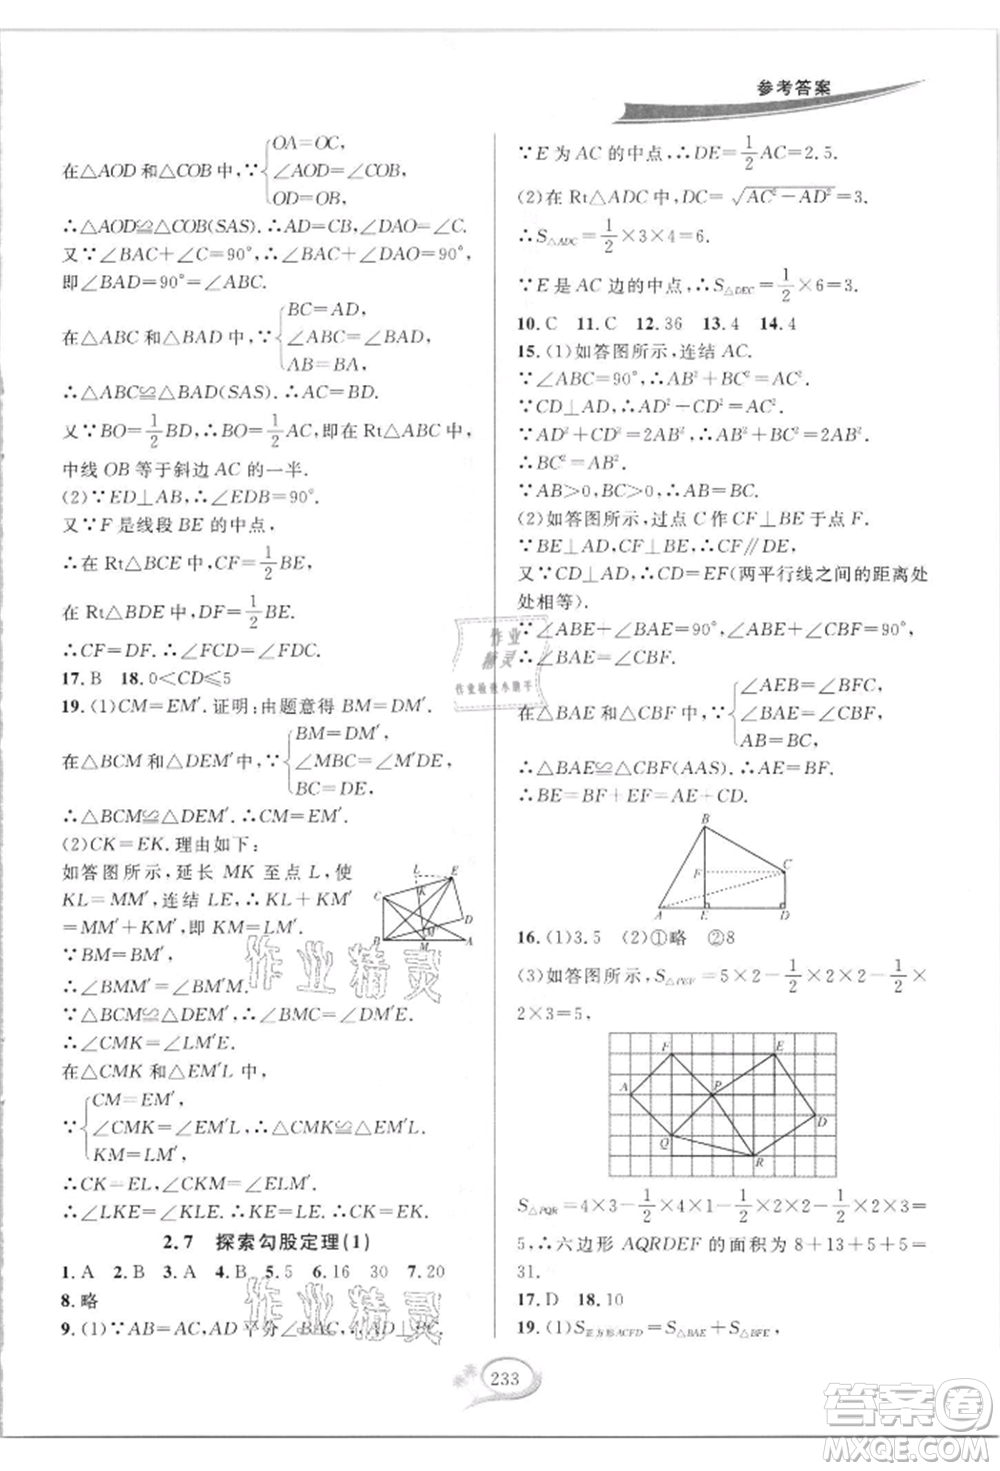 参考答案
在△AOD和△COB中,∵{OA=OC, ∠AOD=∠COB, OD=OB,
∴△AOD≌△COB(SAS).∴AD=CB,∠DAO=∠C.
又∵∠BAC+∠C=90°,∴∠BAC+∠DAO=90°,
即∠BAD=90°=∠ABC.
在△ABC和△BAD中,∵{BC=AD, ∠ABC=∠BAD, AB=BA,
∴△ABC≌△BAD(SAS).∴AC=BD.
又∵BO=1/2BD,∴BO=1/2AC,即在Rt△ABC中,
中线OB等于斜边AC的一半.
(2)∵ED⊥AB,∴∠EDB=90°.
又∵F是线段BE的中点,
∴在Rt△BCE中,CF=1/2BE,
在Rt△BDE中,DF=1/2BE.
∴CF=DF.∴∠FCD=∠FDC.
17.B 18.0<CD≤5
19.(1)CM=EM′.证明:由题意得BM=DM′.
在△BCM和△DEM′中,∵{BM=DM′, ∠MBC=∠M′DE, BC=DE,
∴△BCM≌△DEM′.∴CM=EM′.
(2)CK=EK.理由如下:
如答图所示,延长MK至点L,使
KL=MM′,连结LE,∴KL+KM′
=MM′+KM′,即KM=LM′.
∵BM=BM′,
∴∠BMM′=∠BM′M.
∵∠CMB=∠EM′D,
∴∠CMK=∠LM′E.
在△CMK和△EM′L中,
∵{CM=EM′, ∠CMK=∠EM′L, KM=LM′,
∴△CMK≌△EM′L.
∴CK=EL,∠CKM=∠KLE.
∴∠LKE=∠KLE.∴EL=EK.∴CK=EK.
L
E
C
K
D
M′
B
M
A
2.7 探索勾股定理(1)
1.A 2.B 3.A 4.B 5.5 6.16 30 7.20
8.略
9.(1)∵AB=AC,AD平分∠BAC,∴AD⊥BC.
∵E为AC的中点,∴DE=1/2AC=2.5.
(2)在Rt△ADC中,DC=√(AC²−AD²)=3.
∴S△ADC=1/2×3×4=6.
∵E是AC边的中点,∴S△DEC=1/2×6=3.
10.C 11.C 12.36 13.4 14.4
15.(1)如答图所示,连结AC.
∵∠ABC=90°,∴AB²+BC²=AC².
∵CD⊥AD,∴AD²+CD²=AC².
∵AD²+CD²=2AB²,∴AB²+BC²=2AB².
∴BC²=AB².
∵AB>0,BC>0,∴AB=BC.
(2)如答图所示,过点C作CF⊥BE于点F.
∵BE⊥AD,CF⊥BE,∴CF∥DE.
又∵CD⊥AD,∴CD=EF(两平行线之间的距离处
处相等).
∵∠ABE+∠BAE=90°,∠ABE+∠CBF=90°,
∴∠BAE=∠CBF.
在△BAE和△CBF中,∵{∠AEB=∠BFC, ∠BAE=∠CBF, AB=BC,
∴△BAE≌△CBF(AAS).∴AE=BF.
∴BE=BF+EF=AE+CD.
B
F
C
A
E
D
16.(1)3.5 (2)①略 ②8
(3)如答图所示,S△PEF=5×2−1/2×2×2−1/2×
2×3=5,
F
E
A
P
D
Q
R
S△PQR=4×3−1/2×4×1−1/2×2×2−1/2×2×3=
5,∴六边形AQRDEF的面积为8+13+5+5=
31.
17.D 18.10
19.(1)S正方形ACFD=S△BAE+S△BFE,
233
作业
精灵
作业检查小助手
作业精灵
作业精灵
答案圈
MXQE.COM